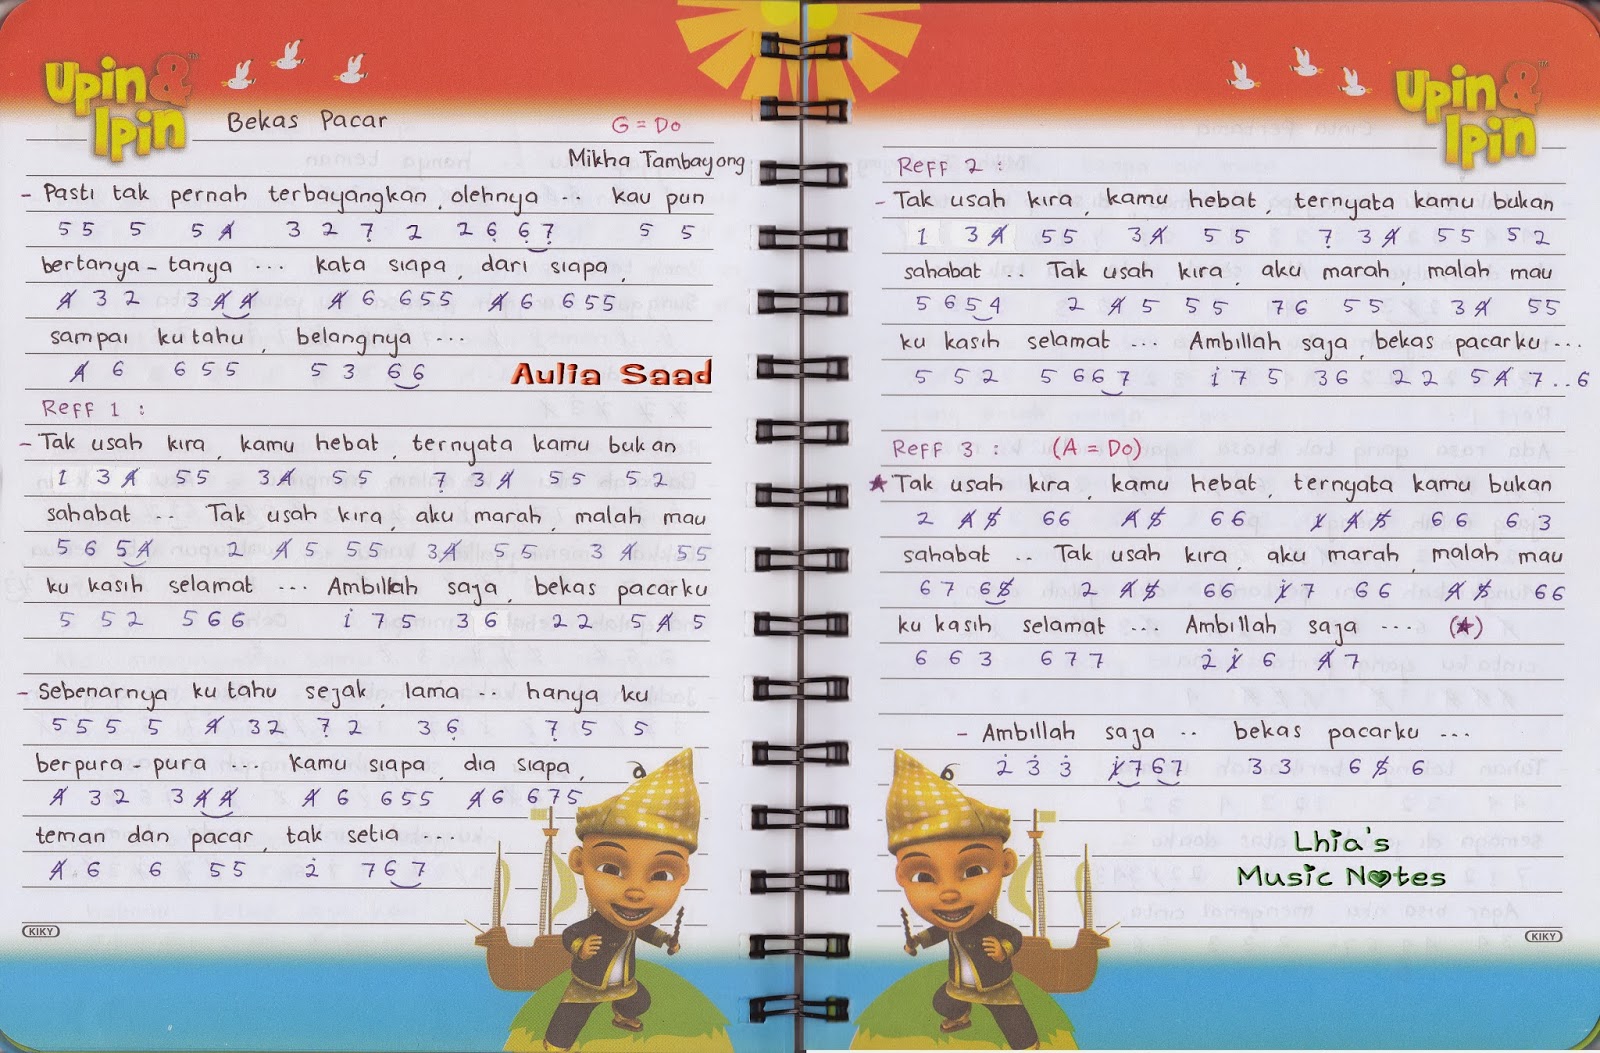 Upin & Ipin™
Bekas Pacar G = Do
Mikha Tambayong
- Pasti tak pernah terbayangkan, olehnya ... kau pun
5 5 5 5 4̸ 3 2 7̣ 2 2 6̣ 6̣ 7̣ 5 5
bertanya-tanya ... kata siapa, dari siapa,
4̸ 3 2 3 4̸ 4̸ 4̸ 6 6 5 5 4̸ 6 6 5 5
sampai ku tahu, belangnya ...
4̸ 6 6 5 5 5 3 6 6
Aulia Saad
Reff 1 :
- Tak usah kira, kamu hebat, ternyata kamu bukan
1 3 4̸ 5 5 3 4̸ 5 5 7̣ 3 4̸ 5 5 5 2
sahabat .. Tak usah kira, aku marah, malah mau
5 6 5 4̸ 2 4̸ 5 5 5 3 4̸ 5 5 3 4̸ 5 5
ku kasih selamat ... Ambillah saja, bekas pacarku
5 5 2 5 6 6 i 7 5 3 6 2 2 5 4̸ 5
- Sebenarnya ku tahu sejak, lama .. hanya ku
5 5 5 5 4̸ 3 2 7̣ 2 3 6̣ 7̣ 5 5
berpura-pura ... kamu siapa, dia siapa,
4̸ 3 2 3 4̸ 4̸ 4̸ 6 6 5 5 4̸ 6 6 7 5
teman dan pacar, tak setia ...
4̸ 6 6 5 5 2̇ 7 6 7
KIKY
Upin & Ipin™
Reff 2 :
- Tak usah kira, kamu hebat, ternyata kamu bukan
1 3 4̸ 5 5 3 4̸ 5 5 7̣ 3 4̸ 5 5 5 2
sahabat ... Tak usah kira, aku marah, malah mau
5 6 5 4 2 4̸ 5 5 5 7 6 5 5 3 4̸ 5 5
ku kasih selamat ... Ambillah saja, bekas pacarku ...
5 5 2 5 6 6 7 i 7 5 3 6 2 2 5 4̸ 7 .. 6
Reff 3 : (A = Do)
★ Tak usah kira, kamu hebat, ternyata kamu bukan
2 4̸ 5̸ 6 6 4̸ 5̸ 6 6 1̸ 4̸ 5̸ 6 6 6 3
sahabat .. Tak usah kira, aku marah, malah mau
6 7 6 5̸ 2 4̸ 5̸ 6 6 1̸̇ 7 6 6 4̸ 5̸ 6 6
ku kasih selamat .... Ambillah saja ... (★)
6 6 3 6 7 7 2̇ 1̸̇ 6 4̸ 7
- Ambillah saja .. bekas pacarku ...
2̇ 3̇ 3̇ 1̸̇ 7 6 7 3 3 6 5̸ 6
Lhia's
Music Notes
KIKY